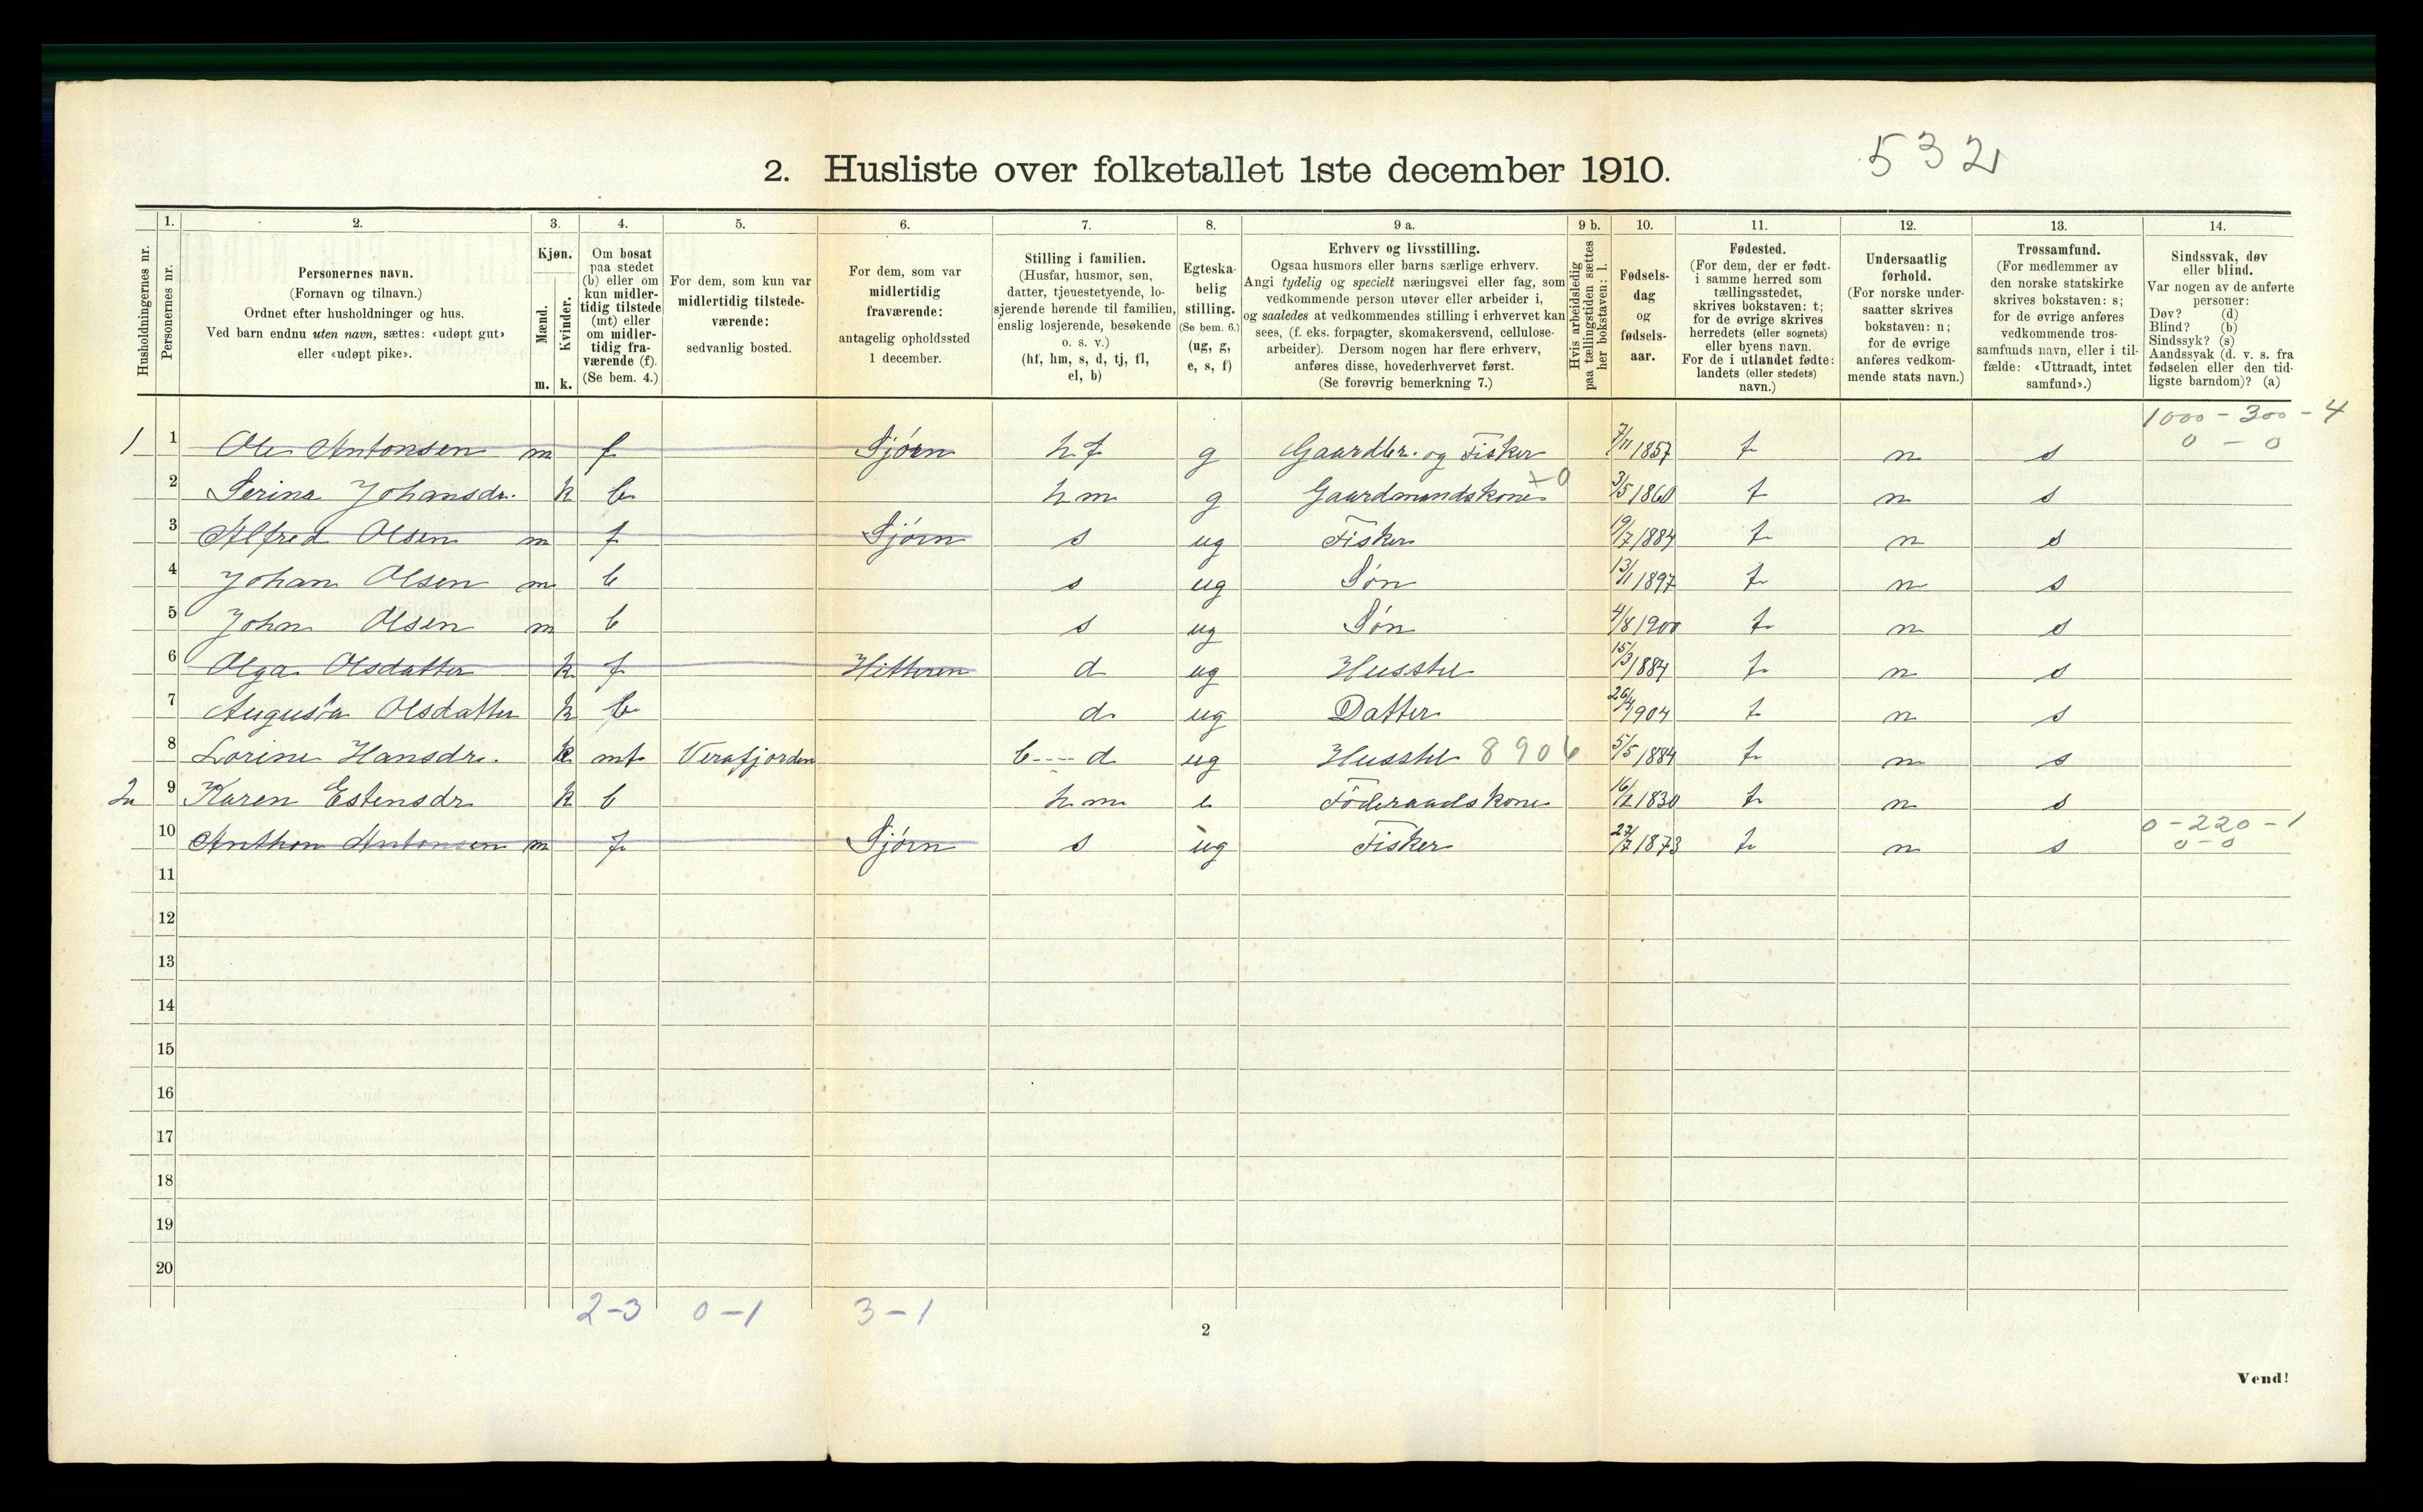 5321
2. Husliste over folketallet 1ste december 1910.
Husholdningernes nr.
1. Personernes nr.
2. Personernes navn.
(Fornavn og tilnavn.)
Ordnet efter husholdninger og hus.
Ved barn endnu uten navn, sættes: «udøpt gut»
eller «udøpt pike».
3. Kjøn.
Mænd. m.
Kvinder. k.
4. Om bosat
paa stedet
(b) eller om
kun midler-
tidig tilstede
(mt) eller
om midler-
tidig fra-
værende (f).
(Se bem. 4.)
5. For dem, som kun var
midlertidig tilstede-
værende:
sedvanlig bosted.
6. For dem, som var
midlertidig
fraværende:
antagelig opholdssted
1 december.
7. Stilling i familien.
(Husfar, husmor, søn,
datter, tjenestetyende, lo-
sjerende hørende til familien,
enslig losjerende, besøkende
o. s. v.)
(hf, hm, s, d, tj, fl,
el, b)
8. Egteska-
belig
stilling.
(Se bem. 6.)
(ug, g,
e, s, f)
9 a. Erhverv og livsstilling.
Ogsaa husmors eller barns særlige erhverv.
Angi tydelig og specielt næringsvei eller fag, som
vedkommende person utøver eller arbeider i,
og saaledes at vedkommendes stilling i erhvervet kan
sees, (f. eks. forpagter, skomakersvend, cellulose-
arbeider). Dersom nogen har flere erhverv,
anføres disse, hovederhvervet først.
(Se forøvrig bemerkning 7.)
9 b. Hvis arbeidsledig
paa tællingstiden sættes
her bokstaven: l.
10. Fødsels-
dag
og
fødsels-
aar.
11. Fødested.
(For dem, der er født.
i samme herred som
tællingsstedet,
skrives bokstaven: t;
for de øvrige skrives
herredets (eller sognets)
eller byens navn.
For de i utlandet fødte:
landets (eller stedets)
navn.)
12. Undersaatlig
forhold.
(For norske under-
saatter skrives
bokstaven: n;
for de øvrige
anføres vedkom-
mende stats navn.)
13. Trossamfund.
(For medlemmer av
den norske statskirke
skrives bokstaven: s;
for de øvrige anføres
vedkommende tros-
samfunds navn, eller i til-
fælde: «Uttraadt, intet
samfund».)
14. Sindssvak, døv
eller blind.
Var nogen av de anførte
personer:
Døv? (d)
Blind? (b)
Sindssyk? (s)
Aandssvak (d. v. s. fra
fødselen eller den tid-
ligste barndom)? (a)
1000 - 300 - 4
0 - 0
1 1 Ole Antonsen m f Sjørn hf g Gaardbr. og Fisker 7/11 1857 t n s
2 Serina Johansdr. k b hm g Gaardmandskone 3/5 1860 t n s
3 Alfred Olsen m f Sjørn s ug Fisker 19/7 1884 t n s
4 Johan Olsen m b s ug Søn 13/1 1897 t n s
5 John Olsen m b s ug Søn 4/8 1900 t n s
6 Olga Olsdatter k f Hitteren d ug Husstel 15/3 1884 t n s
7 Augusta Olsdatter k b d ug Datter 26/4 1904 t n s
8 Lorine Hansdr. k mt Verafjorden b---d ug Husstel 8906 5/5 1884 t n s
2 9 Karen Estensdr k b hm e Föderaadskone 1830 t n s
0 - 220 - 1
10 Anthon Antonsen m f Sjørn s ug Fisker 27/7 1873 t n s 0 - 0
11
12
13
14
15
16
17
18
19
20
2-3 0-1 3-1
2
Vend!